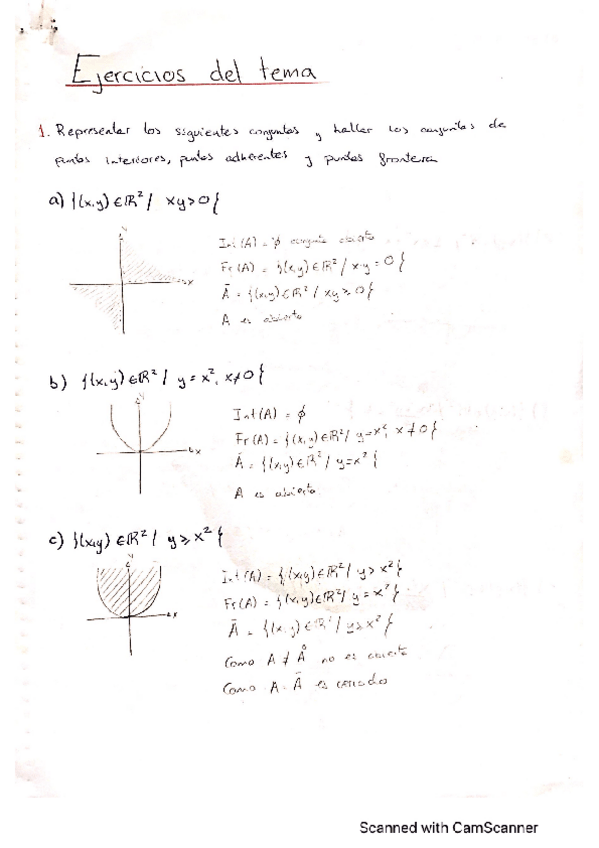 Ejercicios del tema
1. Representar los siguientes conjuntos y hallar los conjuntos de
puntos interiores, puntos adherentes y puntos frontera
a) {(x,y) ∈ ℝ² / xy > 0}
y
x
Int(A) = ∅ conjunto abierto
Fr(A) = {(x,y) ∈ ℝ² / x·y = 0}
Ā = {(x,y) ∈ ℝ² / xy ≥ 0}
A es abierto
b) {(x,y) ∈ ℝ² / y = x², x ≠ 0}
y
x
Int(A) = ∅
Fr(A) = {(x,y) ∈ ℝ² / y = x², x ≠ 0}
Ā = {(x,y) ∈ ℝ² / y = x²}
A es abierto
c) {(x,y) ∈ ℝ² / y ≥ x²}
y
x
Int(A) = {(x,y) ∈ ℝ² / y > x²}
Fr(A) = {(x,y) ∈ ℝ² / y = x²}
Ā = {(x,y) ∈ ℝ² / y ≥ x²}
Como A ≠ Å no es abierto
Como A = Ā es cerrado
Scanned with CamScanner